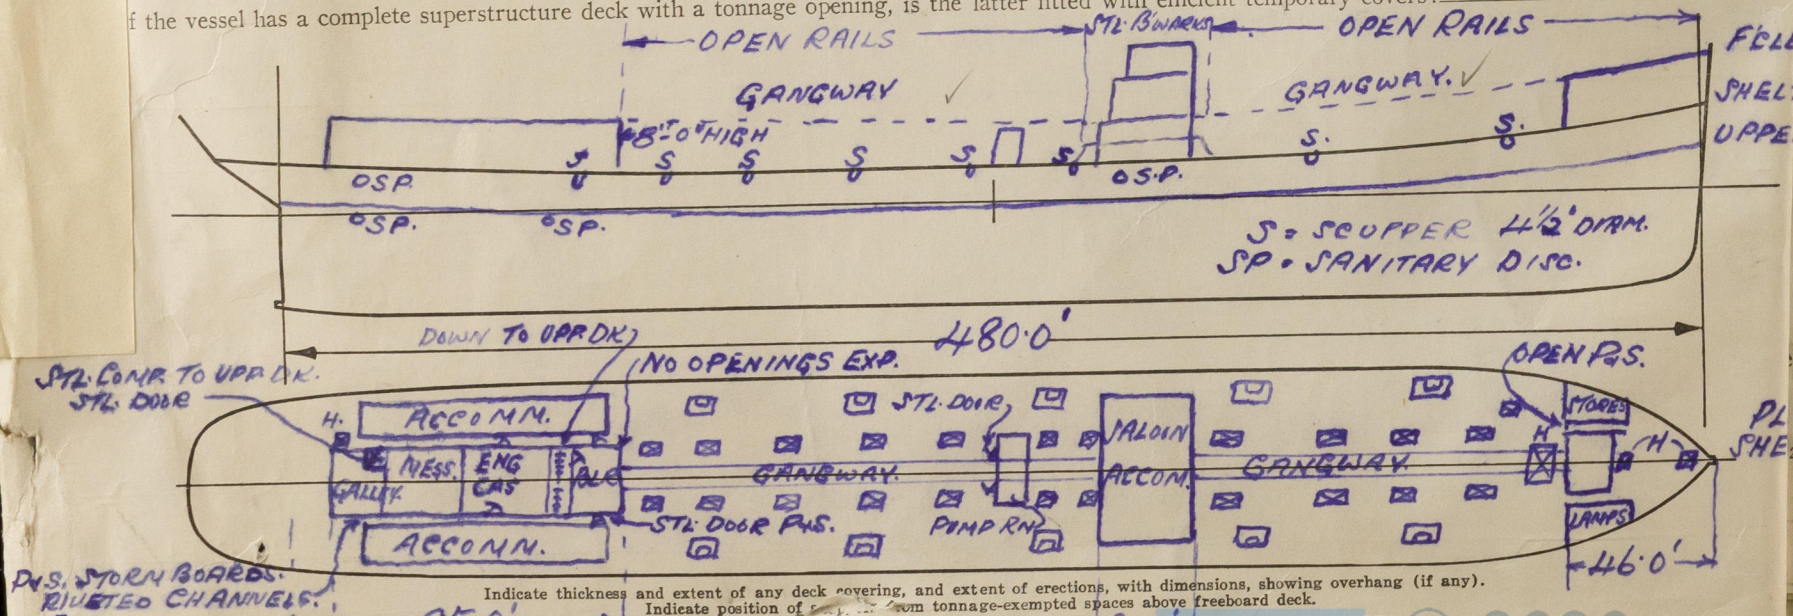 f the vessel has a complete superstructure deck with a tonnage opening, is the latter fitted with efficient temporary covers?
OPEN RAILS
STL. B'WARKS
OPEN RAILS
F'CLE
GANGWAY
GANGWAY.
SHEL
8'-0" HIGH
UPPE
S S S S S S S. S.
OSP.
O S.P.
OSP.
OSP.
S = SCUPPER 4½" DIAM.
SP = SANITARY DISC.
480.0'
DOWN TO UPP. DK.
NO OPENINGS EXP.
OPEN P&S.
STL. COMP. TO UPP. DK.
STL. DOOR
H.
ACCOMM.
STL. DOOR
STORES
PL
SALOON
H
H
SHE
MESS.
ENG
CAS
GALLEY.
GANGWAY.
ACCOM.
GANGWAY.
STL. DOOR P&S.
PUMP RM
LAMPS
ACCOMM.
46.0'
P&S. STORM BOARDS.
RIVETED CHANNELS.
Indicate thickness and extent of any deck covering, and extent of erections, with dimensions, showing overhang (if any).
Indicate position of from tonnage-exempted spaces above freeboard deck.